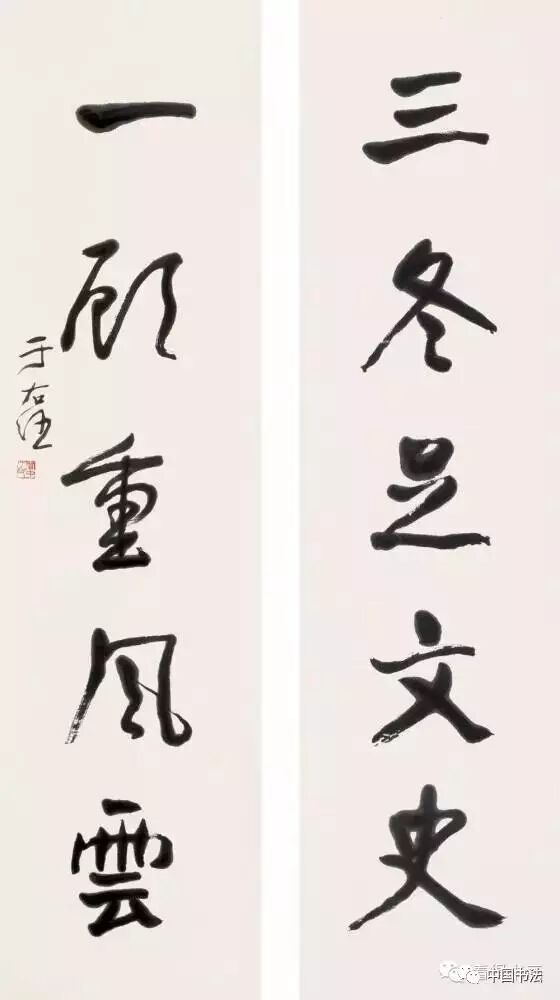 三冬足文史
一顾重风雲
于右任
中国书法